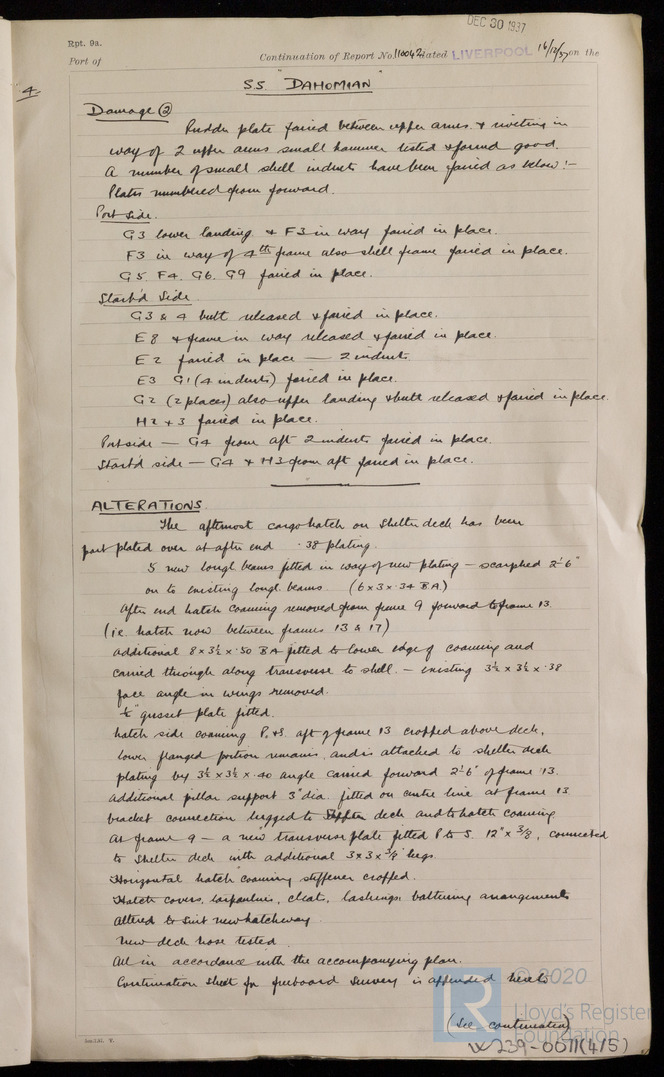 DEC 30 1937
Rpt. 9a.
Port of
Continuation of Report No. 110042 dated LIVERPOOL 16/12/37 on the
4.
S.S. "DAHOMIAN"
Damage ②
Rudder plate faired between upper arms & riveting in
way of 2 upper arms small hammer tested & found good.
A number of small shell indents have been faired as below:-
Plates numbered from forward.
Port Side.
G3 lower landing & F3 in way faired in place.
F3 in way of 4th frame also shell frame faired in place.
G5. F4. G6. G9 faired in place.
Starb'd Side.
G3 & 4 butt released & faired in place.
E8 & frame in way released & faired in place.
E2 faired in place — 2 indents
E3 G1 (4 indents) faired in place.
G2 (2 places) also upper landing & butt released & faired in place.
H2 & 3 faired in place.
Portside — G4 from aft 2 indents faired in place.
Starb'd side — G4 & H3 from aft faired in place.
ALTERATIONS.
The aftermost cargo hatch on shelter deck has been
part plated over at after end .38 plating.
5 new longl beams fitted in way of new plating — scarphed 2'-6"
on to existing longl. beams. (6 x 3 x .34 BA)
After end hatch coaming removed from frame 9 forward to frame 13.
(i.e. hatch now between frames 13 & 17)
Additional 8 x 3½ x .50 BA fitted to lower edge of coaming and
carried through along transverse to shell. — existing 3½ x 3½ x .38
face angle in wings removed.
½" gusset plate fitted.
Hatch side coaming P. & S. aft of frame 13 cropped above deck,
lower flanged portion remains, and is attached to shelter deck
plating by 3½ x 3½ x .40 angle carried forward 2'-6" of frame 13.
Additional pillar support 3" dia. fitted on centre line at frame 13
bracket connection lugged to deck and to hatch coaming
At frame 9 — a new transverse plate fitted P to S. 12" x 3/8, connected
to shelter deck with additional 3 x 3 x 3/8" lugs.
Horizontal hatch coaming stiffener cropped.
Hatch covers, tarpaulins, cleats, lashings battening arrangements
altered to suit new hatchway.
New deck hose tested.
All in accordance with the accompanying plan.
Continuation Sheet for freeboard survey is appended hereto
(See continuation)
© 2020
LR
Lloyd's Register
Foundation
W239-0071(4/5)